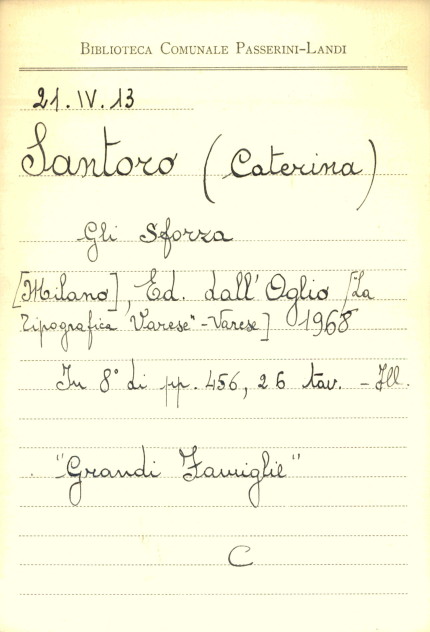 BIBLIOTECA COMUNALE PASSERINI-LANDI
21.IV.13
Santoro (Caterina)
Gli Sforza
[Milano], Ed. dall'Oglio [La
Tipografica Varese"-Varese] 1968
In 8° di pp. 456, 26 tav. - Ill.
"Grandi Famiglie"
C